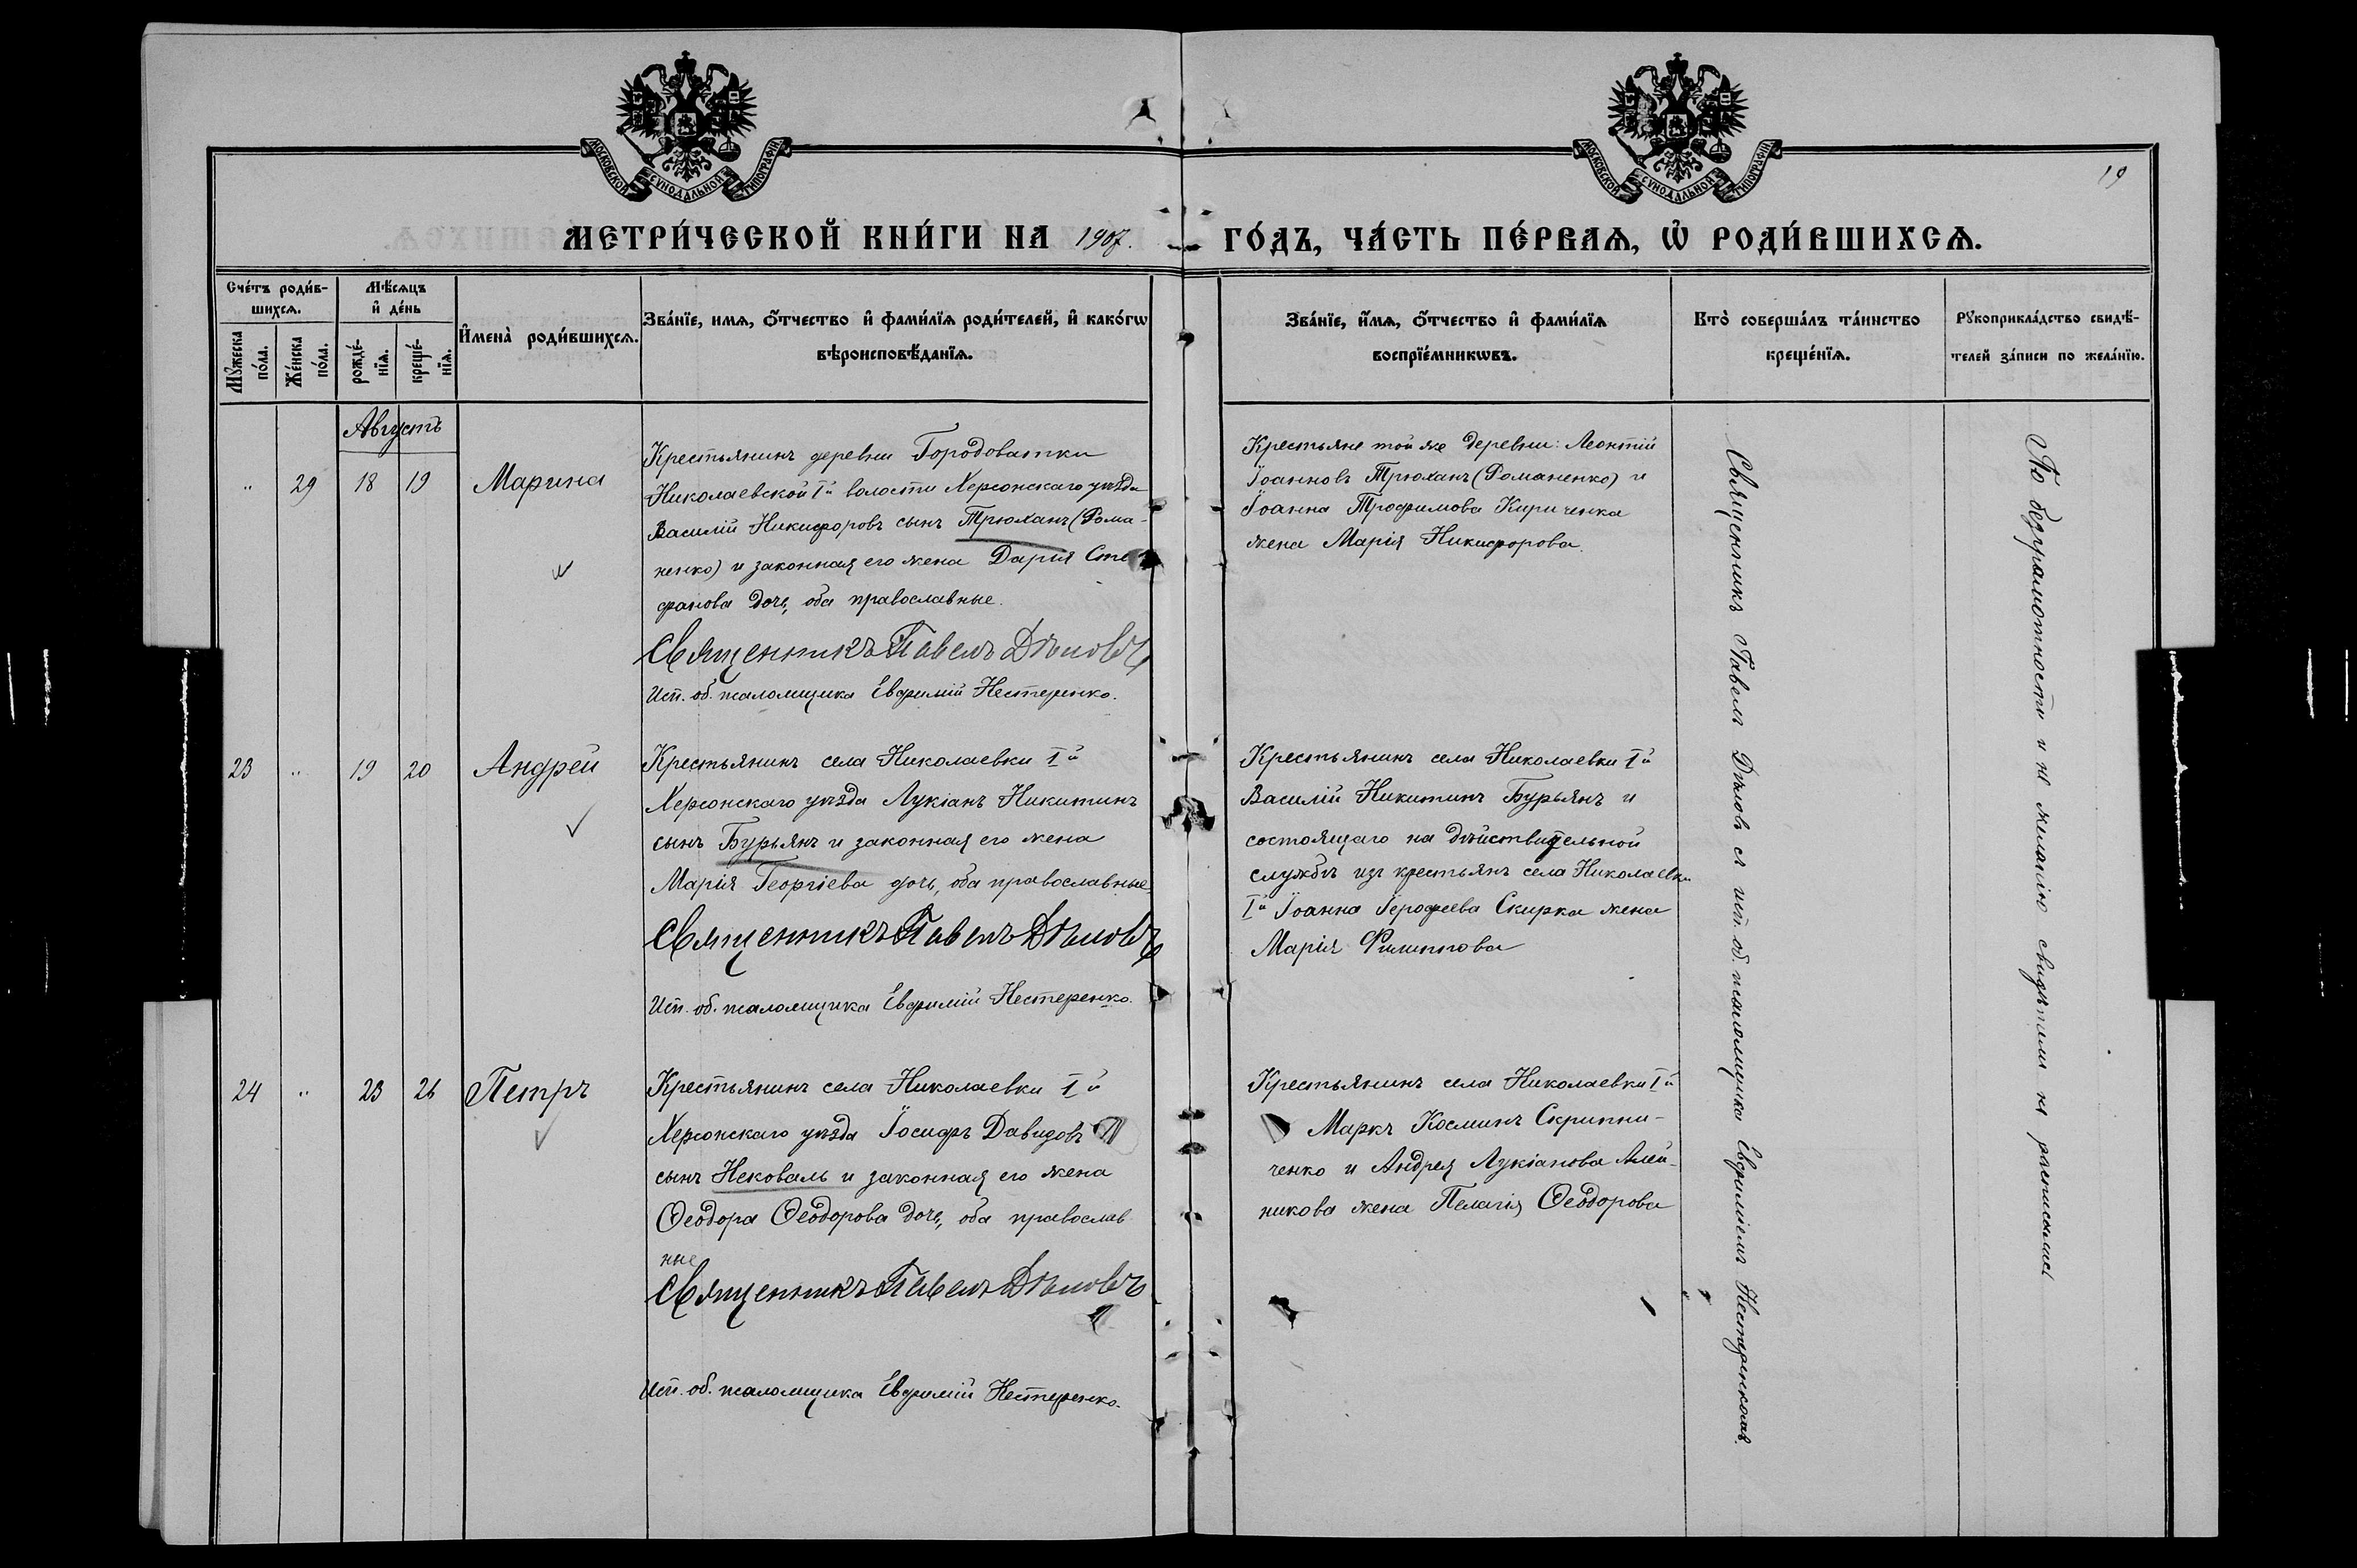 МОСКОВСКОЙ СУНОДАЛЬНОЙ ТИПОГРАФІИ
МОСКОВСКОЙ СУНОДАЛЬНОЙ ТИПОГРАФІИ
19
МЕТРИ́ЧЕСКОЙ КНИ́ГИ НА 1907. ГО́ДЪ, ЧА́СТЬ ПЕ́РВАѦ, Ѡ РОДИ́ВШИХСѦ.
Сче́тъ роди́в-
шихсѧ.
Мꙋжеска по́ла.
Же́нска по́ла.
Мѣ́сѧцъ
и҆ де́нь
рожде́-
нїѧ.
креще́-
нїѧ.
И҆мена̀ роди́вшихсѧ.
Зва́нїе, имѧ, ѻ҆́тчество и҆ фами́лїѧ роди́телей, и҆ како́гѡ
вѣроисповѣ́данїѧ.
Зва́нїе, и҆́мѧ, ѻ҆́тчество и҆ фами́лїѧ
воспрїе́мникѡвъ.
Кто̀ соверша́лъ та́инство
креще́нїѧ.
Рꙋкоприкла́дство свидѣ́-
телей за́писи по жела́нїю.
Августъ
" 29 18 19 Марина
Крестьянинъ деревни Городоватки
Николаевской Iй волости Херсонскаго уѣзда
Василій Никифоровъ сынъ Трюханъ (Рома-
ненко) и законная его жена Дарія Сте
фанова дочь, оба православные.
Священникъ Павелъ Дѣловъ
Исп. об. псаломщика Евфимій Нестеренко.
Крестьяне той же деревни: Леонтій
Іоанновъ Трюханъ (Романенко) и
Іоанна Трофимова Кириченка
жена Марія Никифорова.
23 " 19 20 Андрей
Крестьянинъ села Николаевки Iй
Херсонскаго уѣзда Лукіанъ Никитинъ
сынъ Бурьянъ и законная его жена
Марія Георгіева дочь, оба православные
Священникъ Павелъ Дѣловъ
Исп. об. псаломщика Евфимій Нестеренко.
Крестьянинъ села Николаевки Iй
Василій Никитинъ Бурьянъ и
состоящаго на дѣйствительной
службѣ изъ крестьянъ села Николаевки
Iй Іоанна Іерофеева Скирка жена
Марія Филиппова
24 " 23 26 Петръ
Крестьянинъ села Николаевки Iй
Херсонскаго уѣзда Іосифъ Давидовъ
сынъ Нековаль и законная его жена
Ѳеодора Ѳеодорова дочь, оба православ
ные
Священникъ Павелъ Дѣловъ
Исп. об. псаломщика Евфимій Нестеренко.
Крестьянинъ села Николаевки Iй
Маркъ Косминъ Скрипни-
ченко и Андрея Лукіанова Алей-
никова жена Пелагія Ѳеодорова
Священникъ Павелъ Дѣловъ съ исп. об. псаломщика Евфиміемъ Нестеренкомъ.
По безграмотности и не желанію свидѣтели не расписались